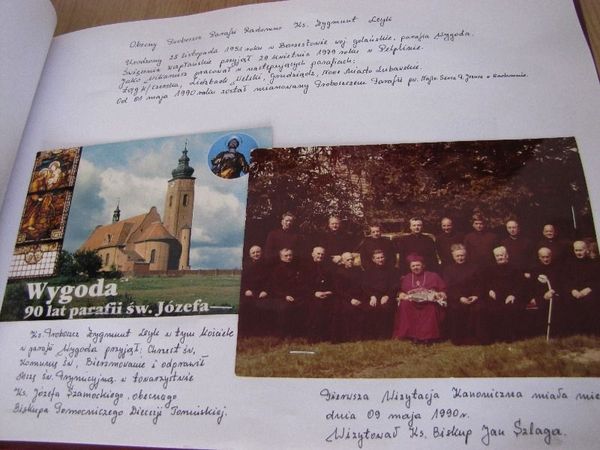 Obecny Proboszcz Parafii Radomno Ks. Zygmunt Leyk
Urodzony 25 listopada 1951 roku w Borzestowie woj gdańskie, parafia Wygoda.
Święcenia kapłańskie przyjął 29 kwietnia 1979 roku w Pelplinie.
Jako Wikariusz pracował w następujących parafiach:
Łąg k/Czerska, Lidzbark Welski, Grudziądz, Nowe Miasto Lubawskie.
Od 01 maja 1990 roku został mianowany Proboszczem Parafii pw. Najśw. Serca P. Jezusa w Radomnie.
Wygoda
90 lat parafii św. Józefa
Ks. Proboszcz Zygmunt Leyk w tym Kościele
w parafii Wygoda przyjął: Chrzest św,
Komunię św, Bierzmowanie i odprawił
Mszę św. Prymicyjną w towarzystwie
Ks. Józefa Szamockiego, obecnego
Biskupa Pomocniczego Diecezji Toruńskiej.
Pierwsza Wizytacja Kanoniczna miała mie
dnia 09 maja 1990r.
Wizytował Ks. Biskup Jan Szlaga.